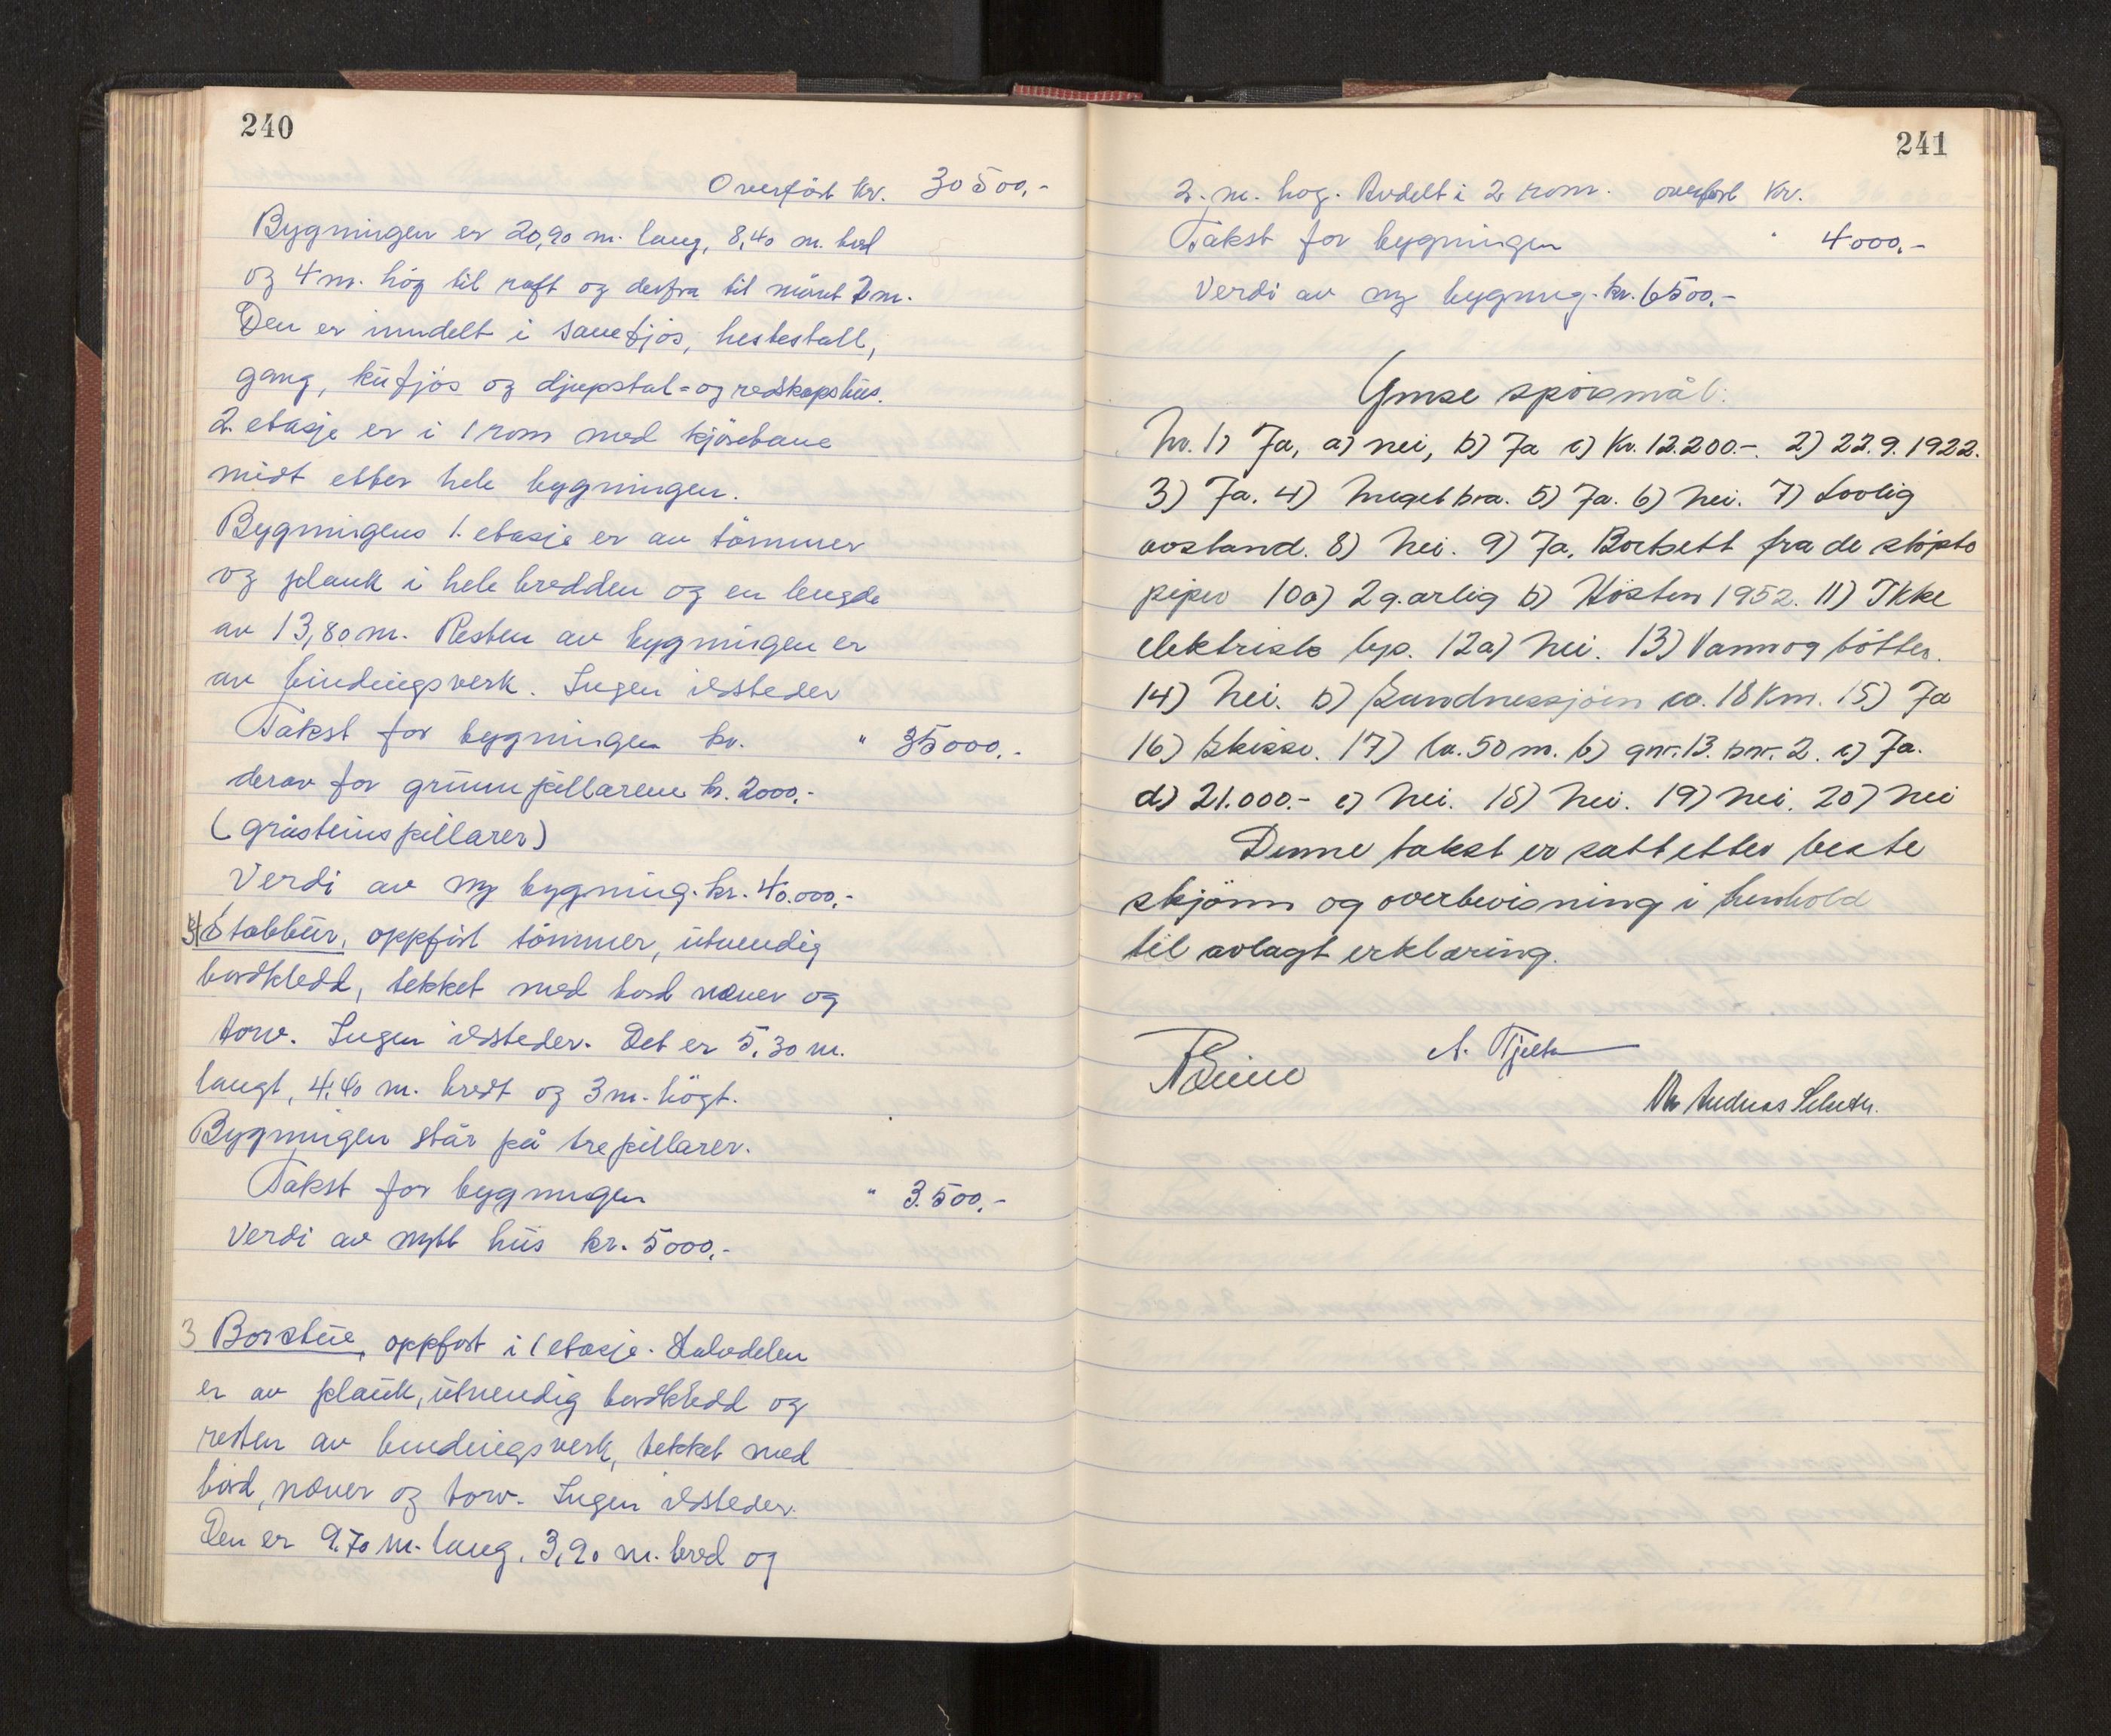 240
Overført kr. 30500,-
Bygningen er 20,90 m. lang, 8,40 m. bred
og 4 m. høg til raft og derfra til mønet 2 m.
Den er inndelt i sauefjøs, hestestall,
gang, kufjøs og djupstal= og redskapshus.
2. etasje er i 1 rom med kjørebane
midt etter hele bygningen.
Bygnigens 1. etasje er av tømmer
og plank i hele bredden og en lengde
av 13,80 m. Resten av bygningen er
av bindingsverk. Ingen ildsteder
Takst for bygningen kr. " 35000,-
derav for grunnpillarene kr. 2000,-
(gråsteinspillarer)
Verdi av ny bygning. kr. 40.000,-
Stabbur, oppført tømmer, utvendig
bordkledd, tekket med bord never og
torv. Ingen ildsteder. Det er 5,30 m.
langt, 4,40 m. bredt og 3 m. høgt.
Bygningen står på trepillarer.
Takst for bygningen " 3.500,-
Verdi av nytt hus kr. 5000,-
3 Borstue, oppført i 1 etasje. Halvdelen
er av plank, utvendig bordkledd og
resten av bindingsverk, tekket med
bord, never og torv. Ingen ildsteder.
Den er 9,70 m. lang, 3,90 m. bred og
241
2. m. høg. Avdelt i 2 rom. overført kr.
Takst for bygningen " 4000,-
Verdi av ny bygning. kr. 6500,-
Ymse spørsmål:
Nr. 1) Ja, a) nei, b) Ja c) Kr. 12.200.-. 2) 22.9.1922.
3) Ja. 4) Meget bra. 5) Ja. 6) Nei. 7) Lovlig
avstand. 8) Nei. 9) Ja. Bortsett fra de støpte
piper 10a) 2 g. årlig b) Høsten 1952. 11) Ikke
elektrisk lys. 12a) Nei. 13) Vann og bøtter.
14) Nei. b) Sandnessjøen ca. 18 km. 15) Ja
16) Skisse. 17) Ca. 50 m. b) gnr. 13. bnr. 2. c) Ja.
d) 21.000.- e) Nei. 18) Nei. 19) Nei. 20) Nei
Denne takst er satt etter beste
skjønn og overbevisning i henhold
til avlagt erklæring.
Andreas